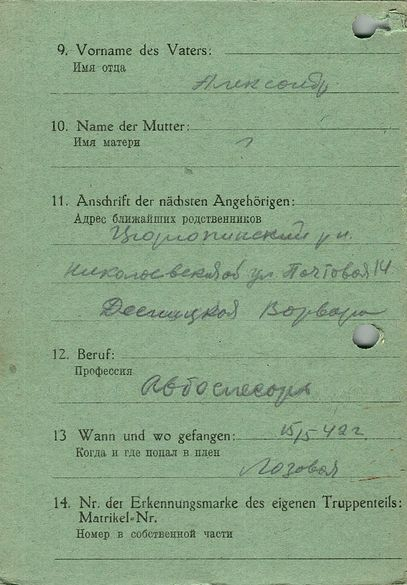 9. Vorname des Vaters:
Имя отца
Александр
10. Name der Mutter:
Имя матери
?
11. Anschrift der nächsten Angehörigen:
Адрес ближайших родственников
Цюрюпинский р-н
Николаевская об ул. Почтовая 14
Десницкая Варвара
12. Beruf:
Профессия
13 Wann und wo gefangen:
15/5-42 г.
Когда и где попал в плен
Лозовая
14. Nr. der Erkennungsmarke des eigenen Truppenteils:
Matrikel-Nr.
Номер в собственной части